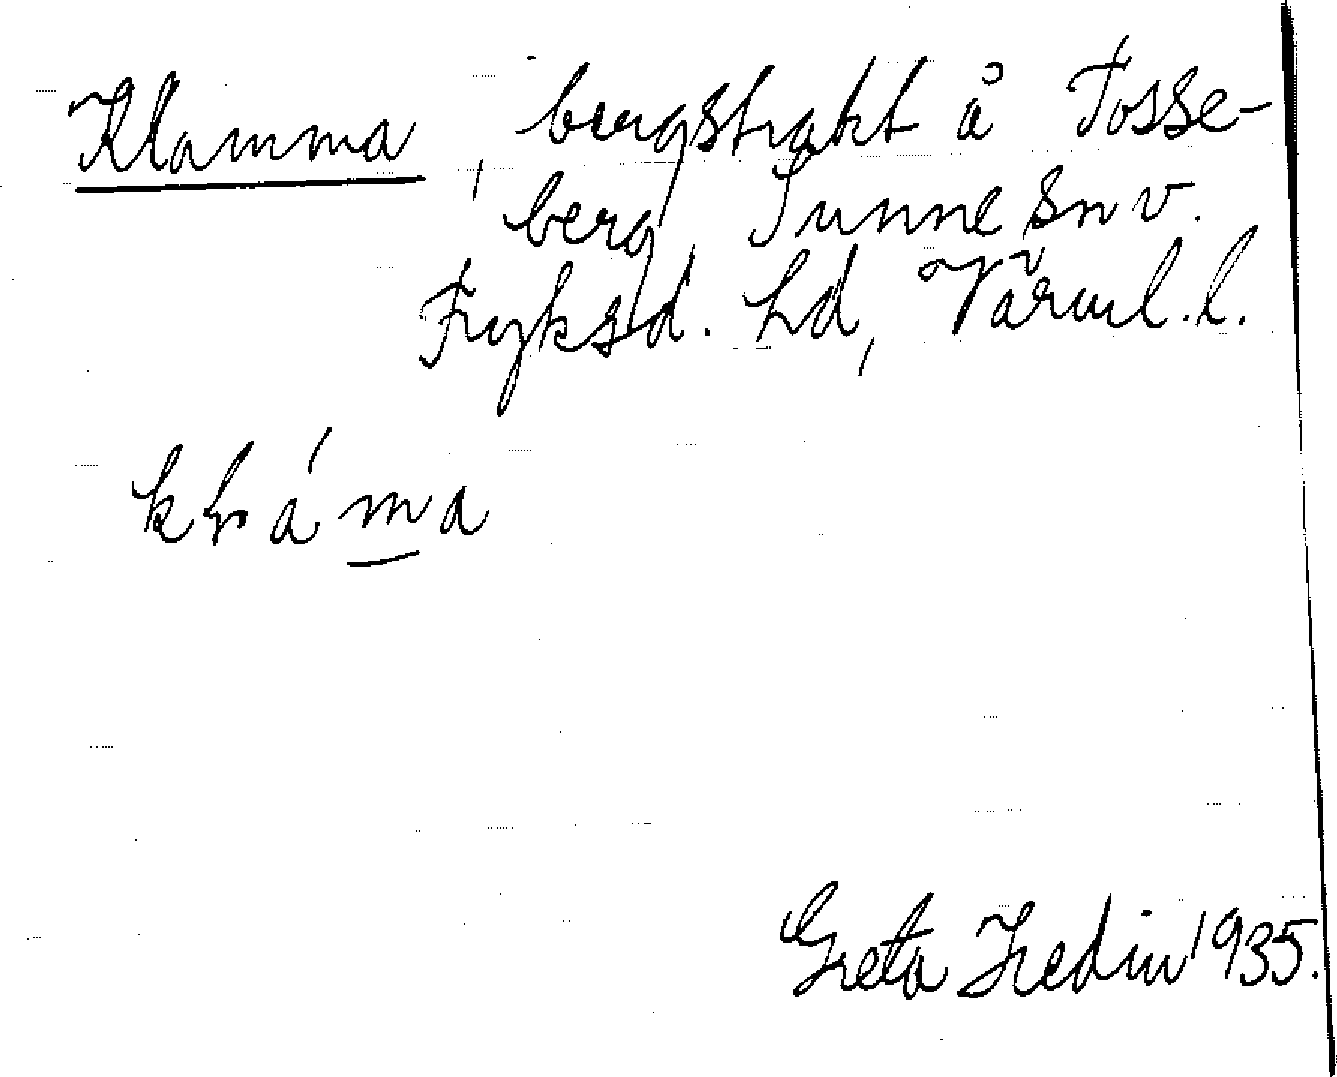 Klamma, bergstrakt å Tosse-
berg, Sunne sn v.
Fryksd. hd, Värml. l.
kɫáma
Greta Hedin 1935.